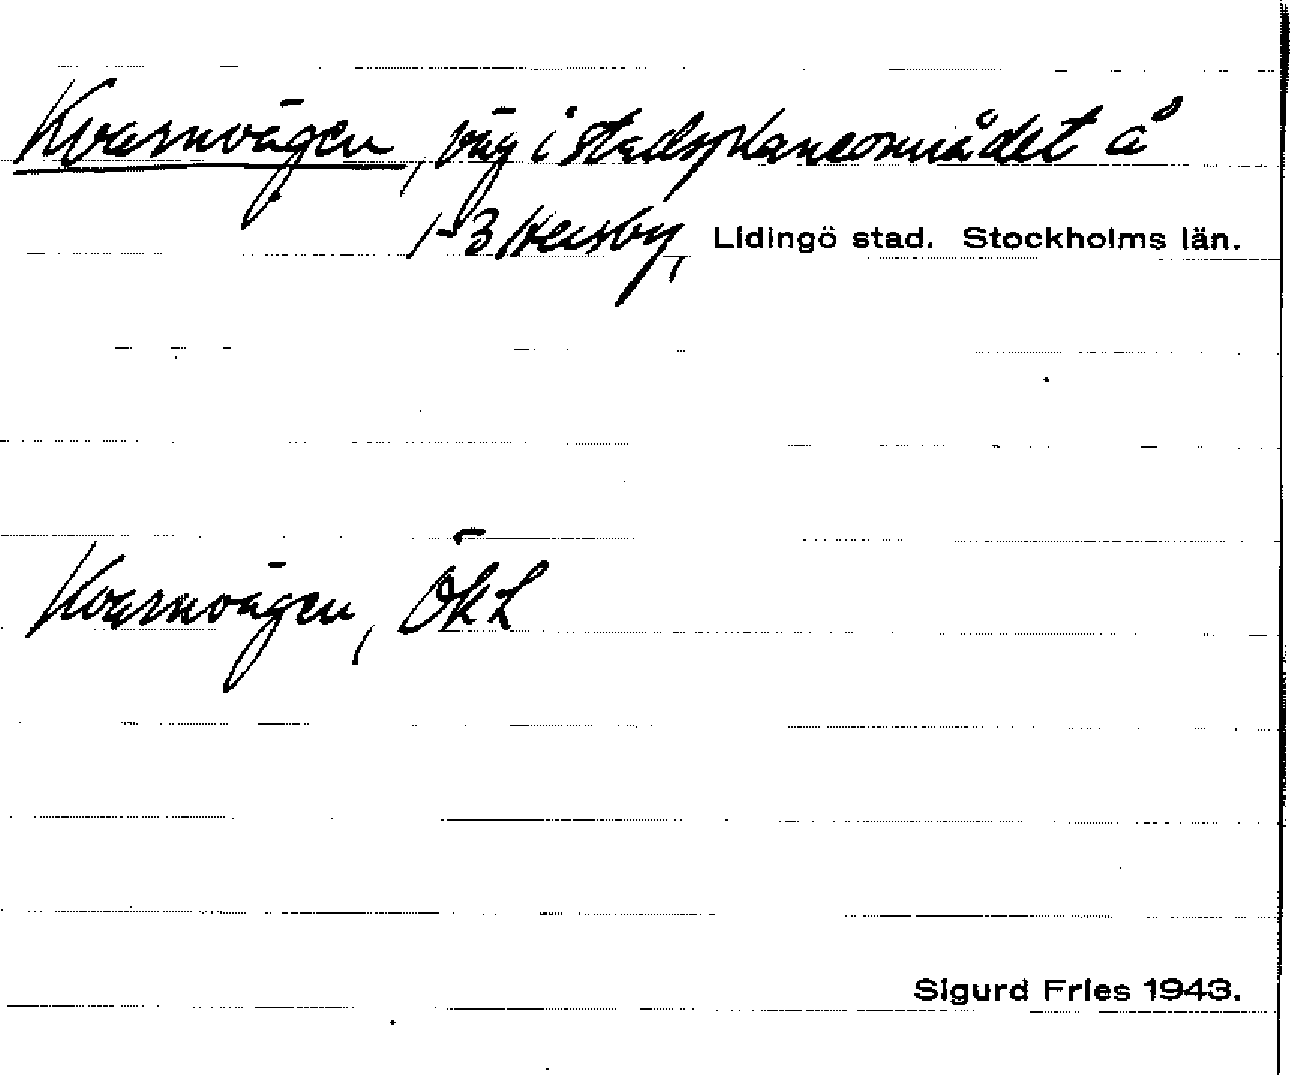 Kvarnvägen, väg i stadsplaneområdet å
1-3 Hersby, Lidingö stad. Stockholms län.
Kvarnvägen, ÖKL
Sigurd Fries 1943.